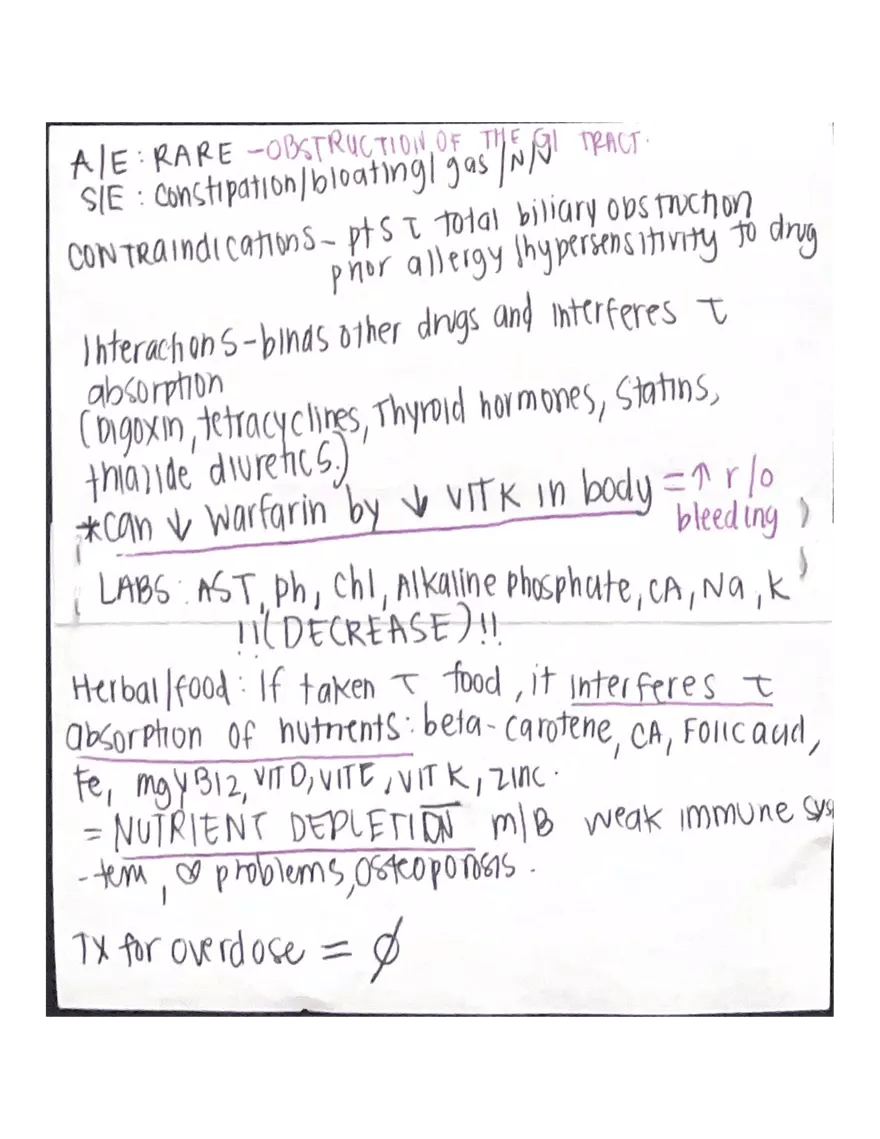 A/E: RARE -OBSTRUCTION OF THE GI TRACT.
S/E: Constipation/bloating/gas/N/V
CONTRAINDICATIONS- pts c̄ total biliary obstruction
prior allergy/hypersensitivity to drug
Interactions-binds other drugs and interferes c̄
absorption
(Digoxin, tetracyclines, Thyroid hormones, Statins,
thiazide diuretics.)
*can ↓ warfarin by ↓ VIT K in body = ↑ r/o
bleeding
LABS: AST, ph, Chl, Alkaline phosphate, CA, Na, K
!!(DECREASE)!!
Herbal/food: If taken c̄ food, it interferes c̄
absorption of nutrients: beta-carotene, CA, Folic acid,
Fe, mg, B12, VIT D, VIT E, VIT K, zinc.
= NUTRIENT DEPLETION m/B weak immune sys
-tem, ♡ problems, osteoporosis.
TX for overdose = ∅